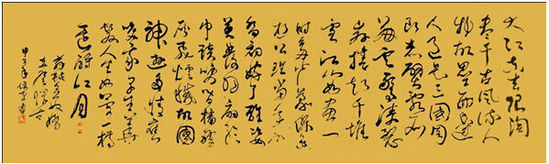 大江东去浪淘
尽千古风流人
物故垒西边
人道是三国周
郎赤壁乱石
岸捲起千堆
雪江山如画一
时多少豪杰遥
想公瑾当年小
乔初嫁了雄姿
英发羽扇纶
巾谈笑间樯橹
灰飞烟灭故国
神游多情应
笑我早生华
发人生如梦一樽
还酹江月
苏轼念奴娇
赤壁怀古